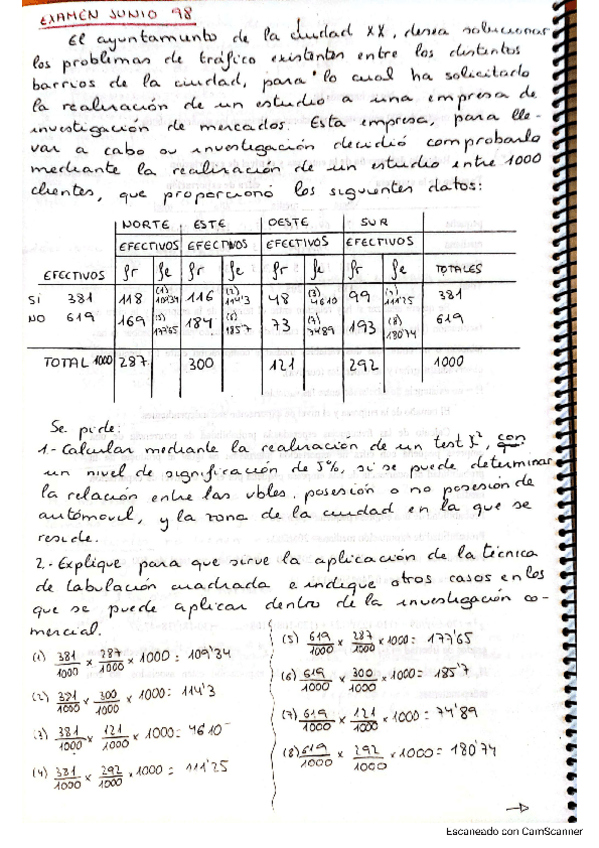 EXAMEN JUNIO 98
El ayuntamiento de la ciudad XX, desea solucionar
los problemas de tráfico existentes entre los distintos
barrios de la ciudad, para lo cual ha solicitado
la realización de un estudio a una empresa de
investigación de mercados. Esta empresa, para lle-
var a cabo su investigación decidió comprobarlo
mediante la realización de un estudio entre 1000
clientes, que proporcionó los siguientes datos:
NORTE ESTE OESTE SUR
EFECTIVOS EFECTIVOS EFECTIVOS EFECTIVOS
EFECTIVOS fr fe fr fe fr fe fr fe TOTALES
SI 381 118 (1) 109'34 116 (2) 114'3 48 (3) 46'10 99 (4) 111'25 381
NO 619 169 (5) 177'65 184 (6) 185'7 73 (7) 74'89 193 (8) 180'74 619
TOTAL 1000 287 300 121 292 1000
Se pide:
1.- Calcular mediante la realización de un test X², con
un nivel de significación de 5%, si se puede determinar
la relación entre las vbles, posesión o no posesión de
automóvil, y la zona de la ciudad en la que se
reside.
2.- Explique para que sirve la aplicación de la técnica
de tabulación cuadrada e indique otros casos en los
que se puede aplicar dentro de la investigación co-
mercial.
(1) 381/1000 x 287/1000 x 1000 = 109'34
(2) 381/1000 x 300/1000 x 1000 = 114'3
(3) 381/1000 x 121/1000 x 1000 = 46'10
(4) 381/1000 x 292/1000 x 1000 = 111'25
(5) 619/1000 x 287/1000 x 1000 = 177'65
(6) 619/1000 x 300/1000 x 1000 = 185'7
(7) 619/1000 x 121/1000 x 1000 = 74'89
(8) 619/1000 x 292/1000 x 1000 = 180'74
Escaneado con CamScanner